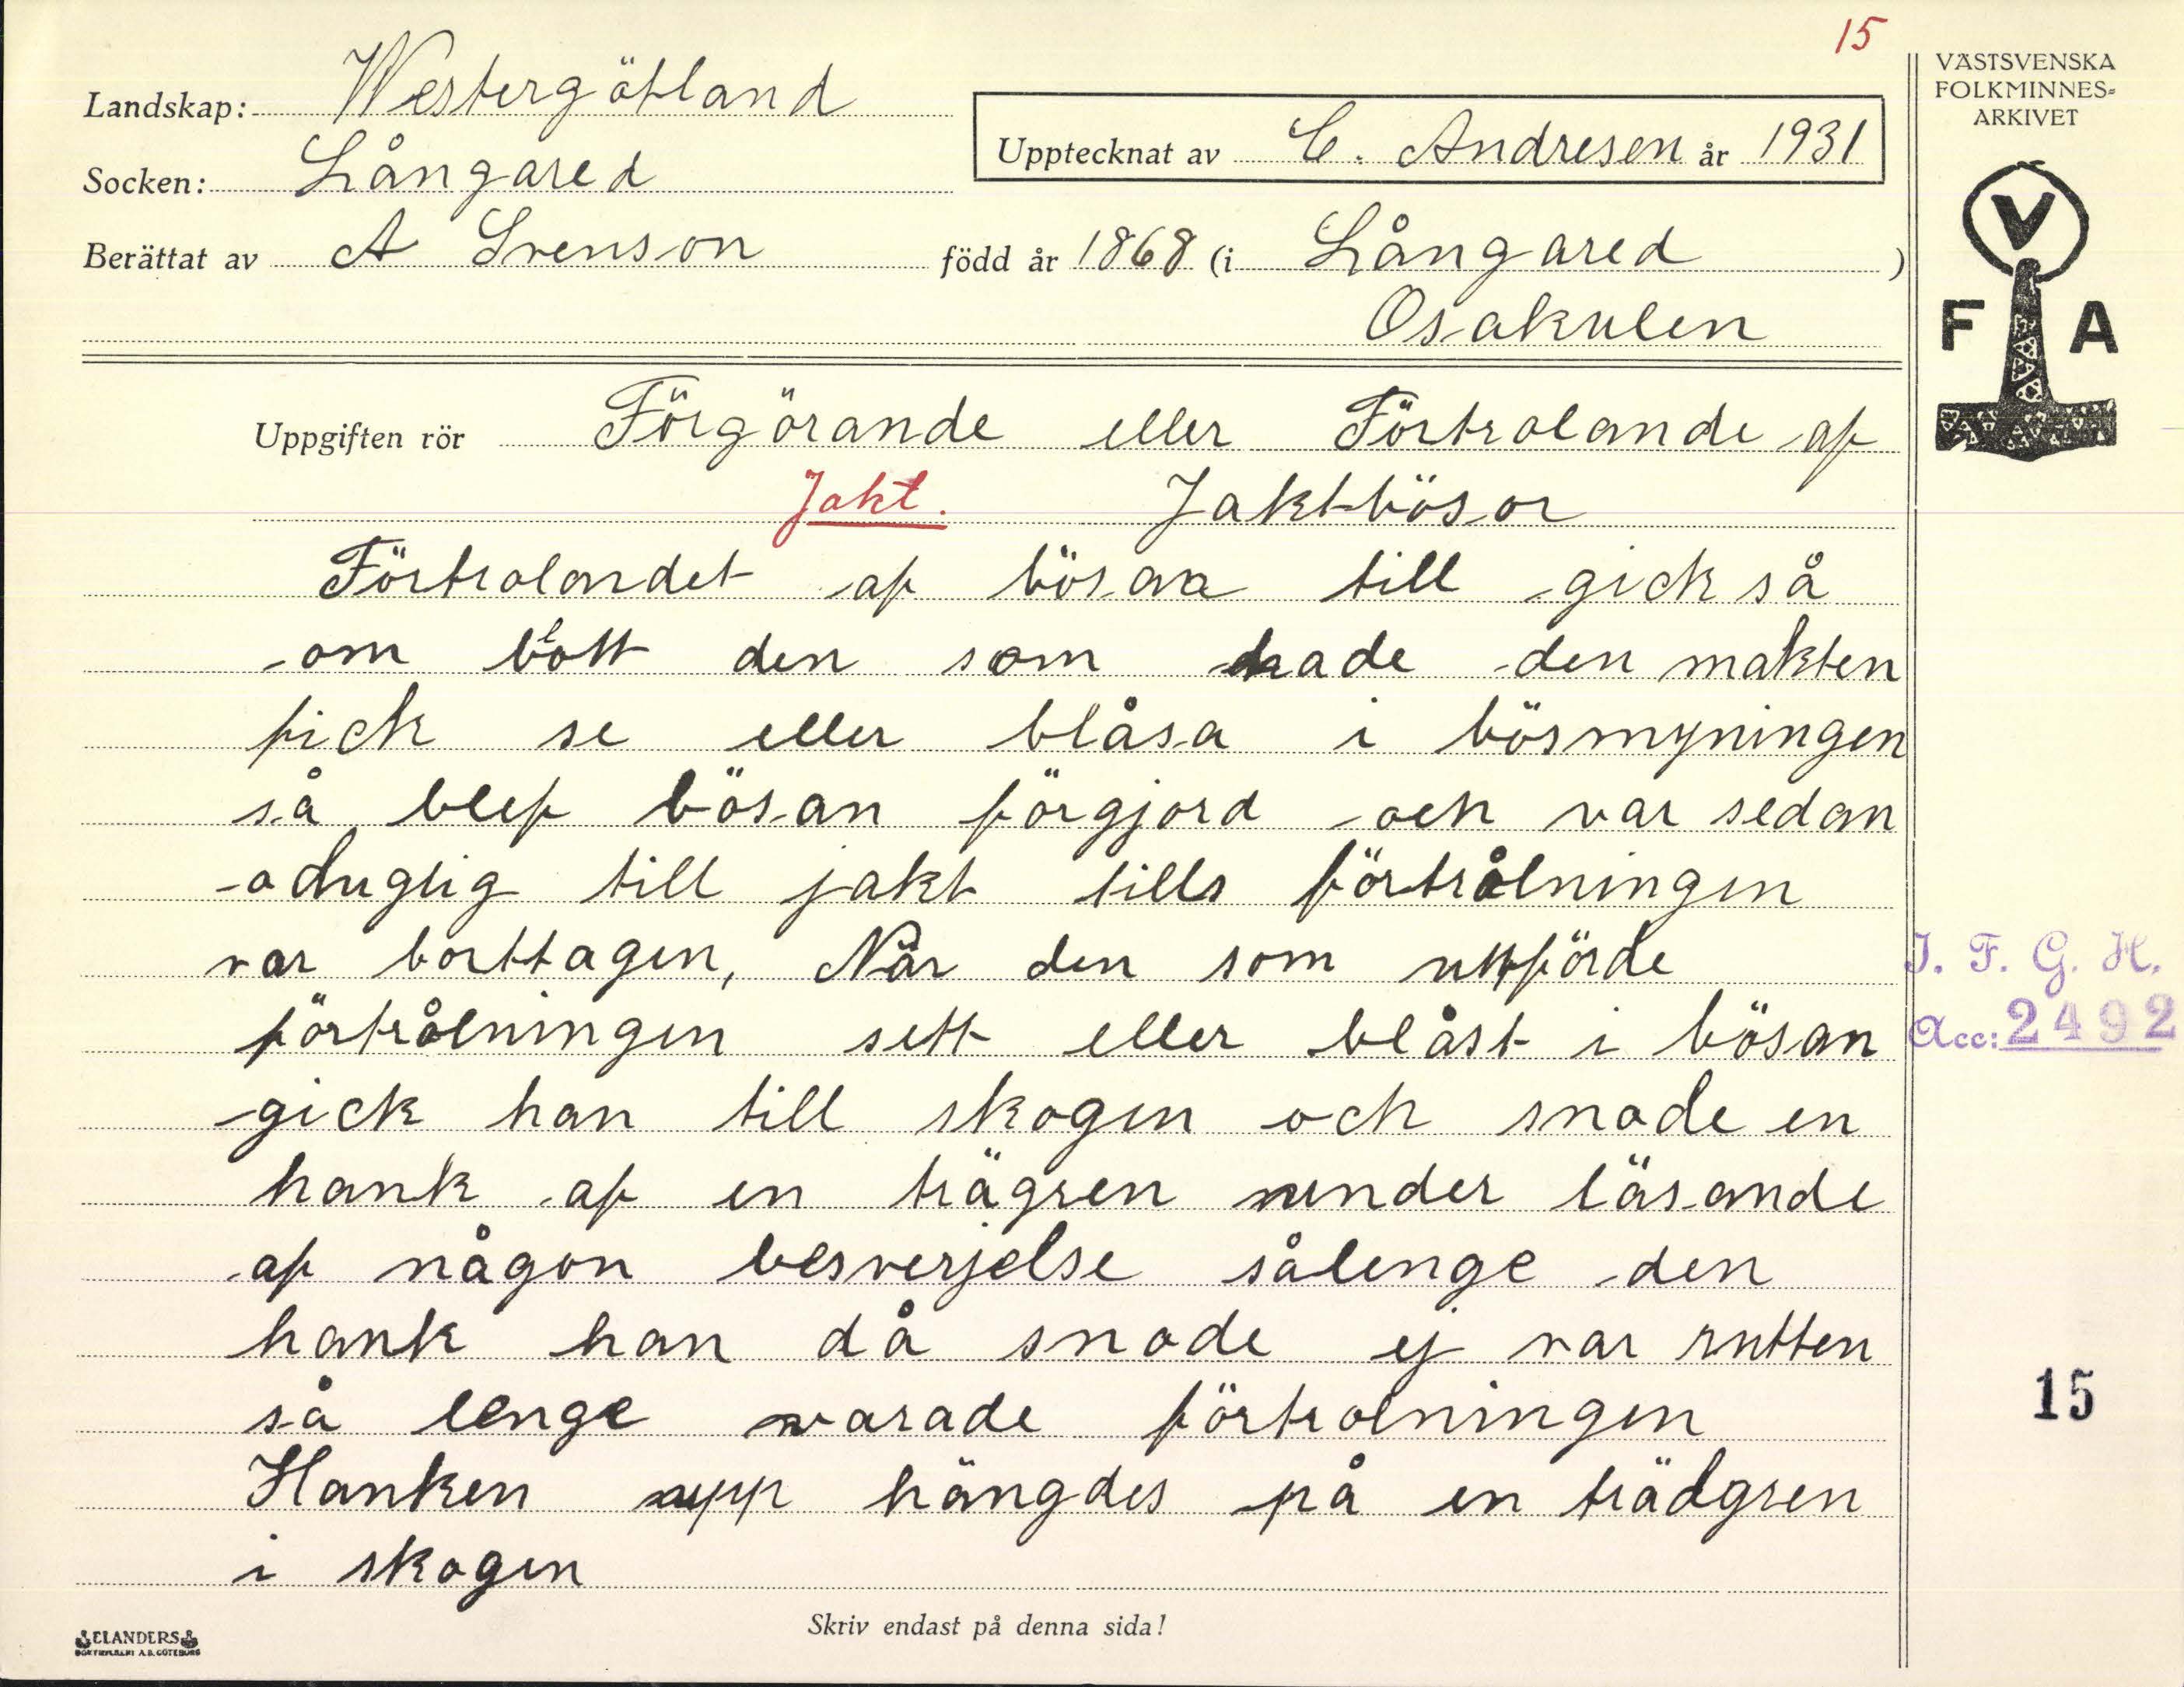 15
Landskap: Westergötland
Socken: Långared
Upptecknat av C. Andresen år 1931
Berättat av A Svenson född år 1868 (i Långared )
Osakulen
VÄSTSVENSKA
FOLKMINNES=
ARKIVET
V
F A
Uppgiften rör Förgörande eller Förtrolande af
Jakt. Jaktbösor
Förtrolandet af bösora till gick så
om blott den som hade den makten
fick se eller blåsa i bösmyningen
så blef bösan förgjord och var sedan
oduglig till jakt tills förtrålningen
var borttagen, När den som utförde
förtrålningen sett eller blåst i bösan
gick han till skogen och snode en
hank af en trägren under läsande
af någon besverjelse sålenge den
hank han då snode ej var rutten
så lenge varade förtrolningen
Hanken upp hängdes på en trädgren
i skogen
I. F. G. H.
Acc: 2492
15
Skriv endast på denna sida!
ELANDERS
BOKTRYCKERI A.B. GÖTEBORG